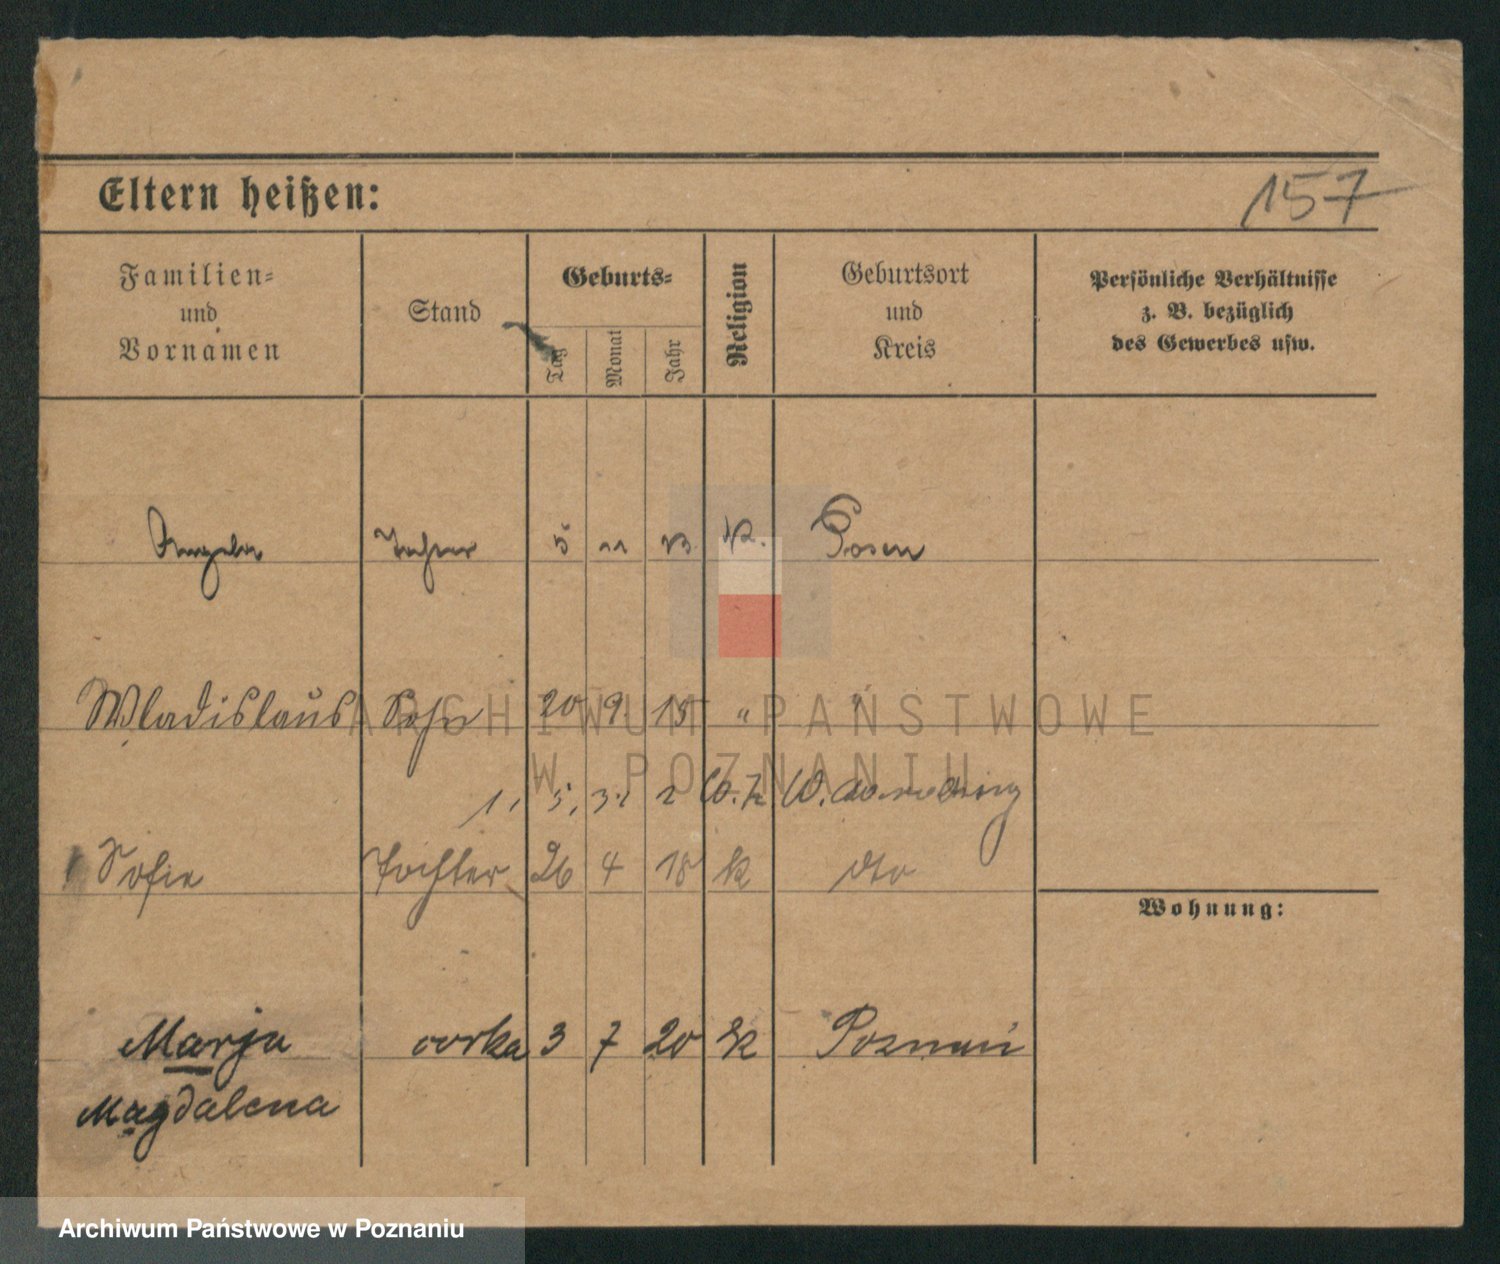 Eltern heißen:
157
Familien-
und
Vornamen
Stand
Geburts-
Tag
Monat
Jahr
Religion
Geburtsort
und
Kreis
Persönliche Verhältnisse
z. B. bezüglich
des Gewerbes usw.
Angela 5 11 13 k. Posen
Wladislaus Sohn 20 9 15 " "
ARCHIWUM PAŃSTWOWE
W POZNANIU
Sofie Tochter 26 4 18 k dto
Wohnung:
Marja corka 3 7 20 k Poznań
Magdalena
Archiwum Państwowe w Poznaniu